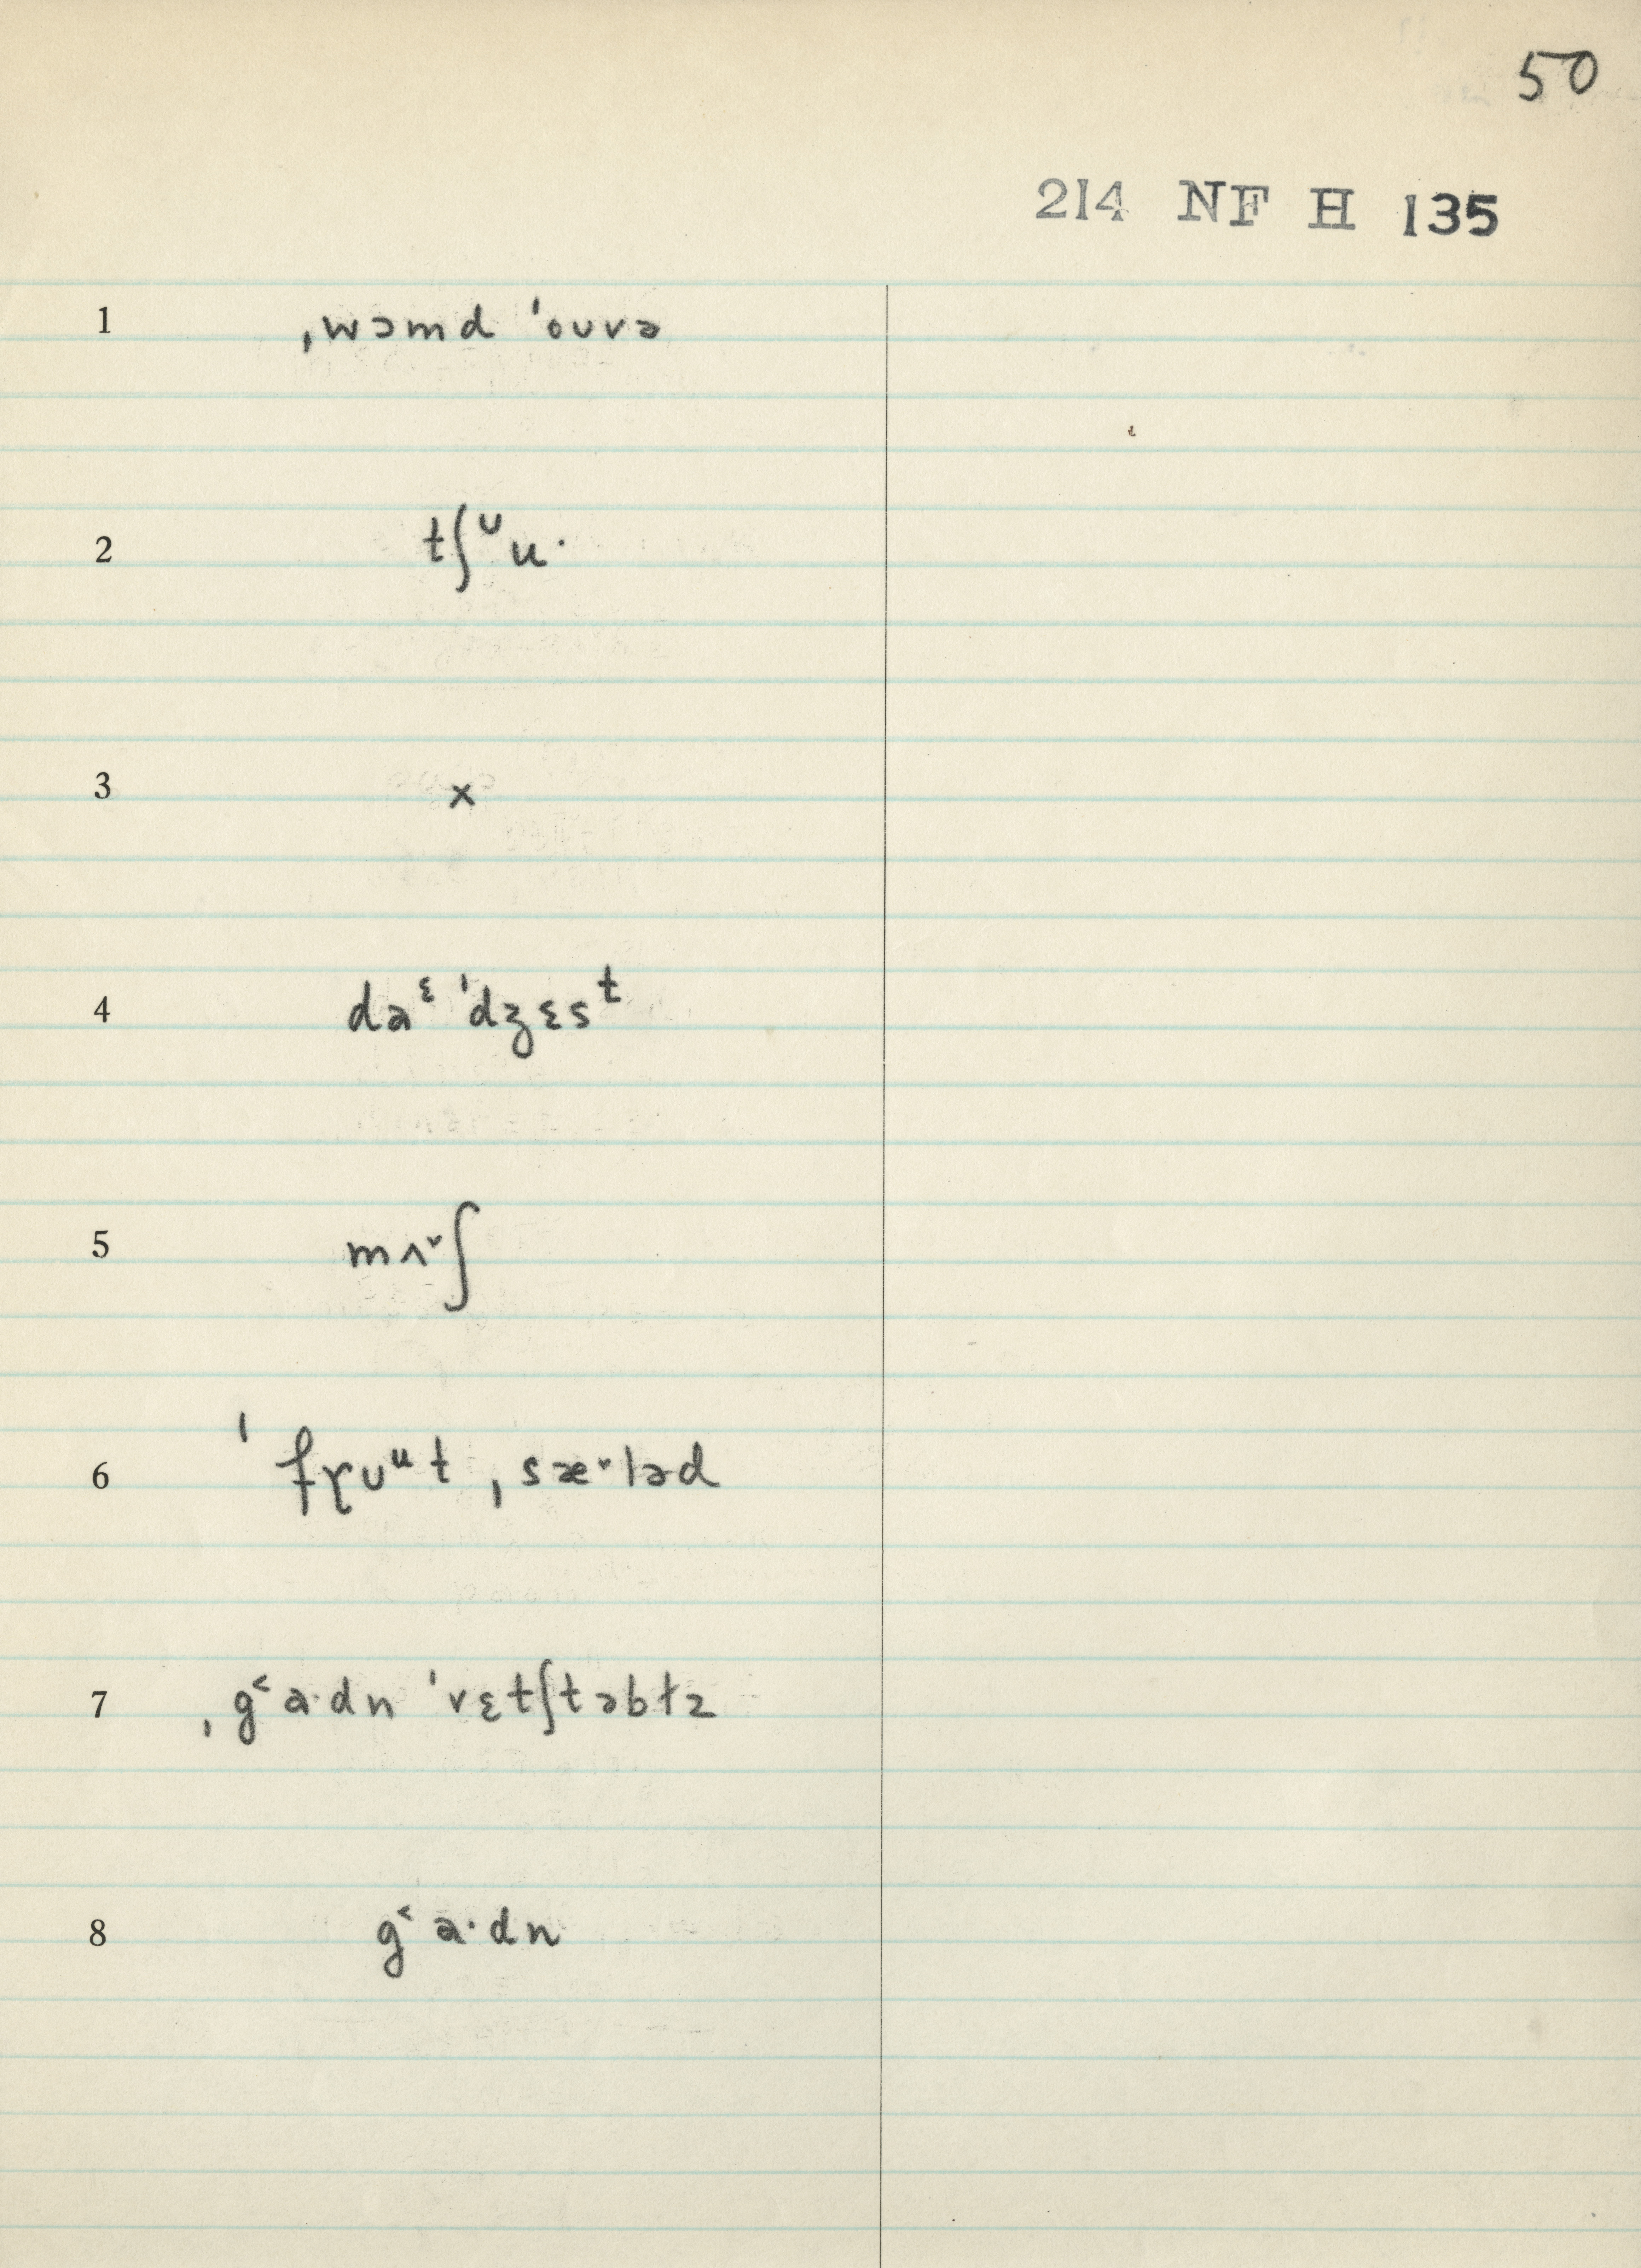 50
214 NF H 135
1 ˌwɔmd ˈouvə
2 tʃᶸu·
3 ×
4 daᵋ ˈdʒɛsᵗ
5 mʌ˅ʃ
6 ˈfɼʊᵘt ˌsæ˅ləd
7 ˌg˂a·dn ˈvɛtʃtəbɫz
8 g˂a·dn